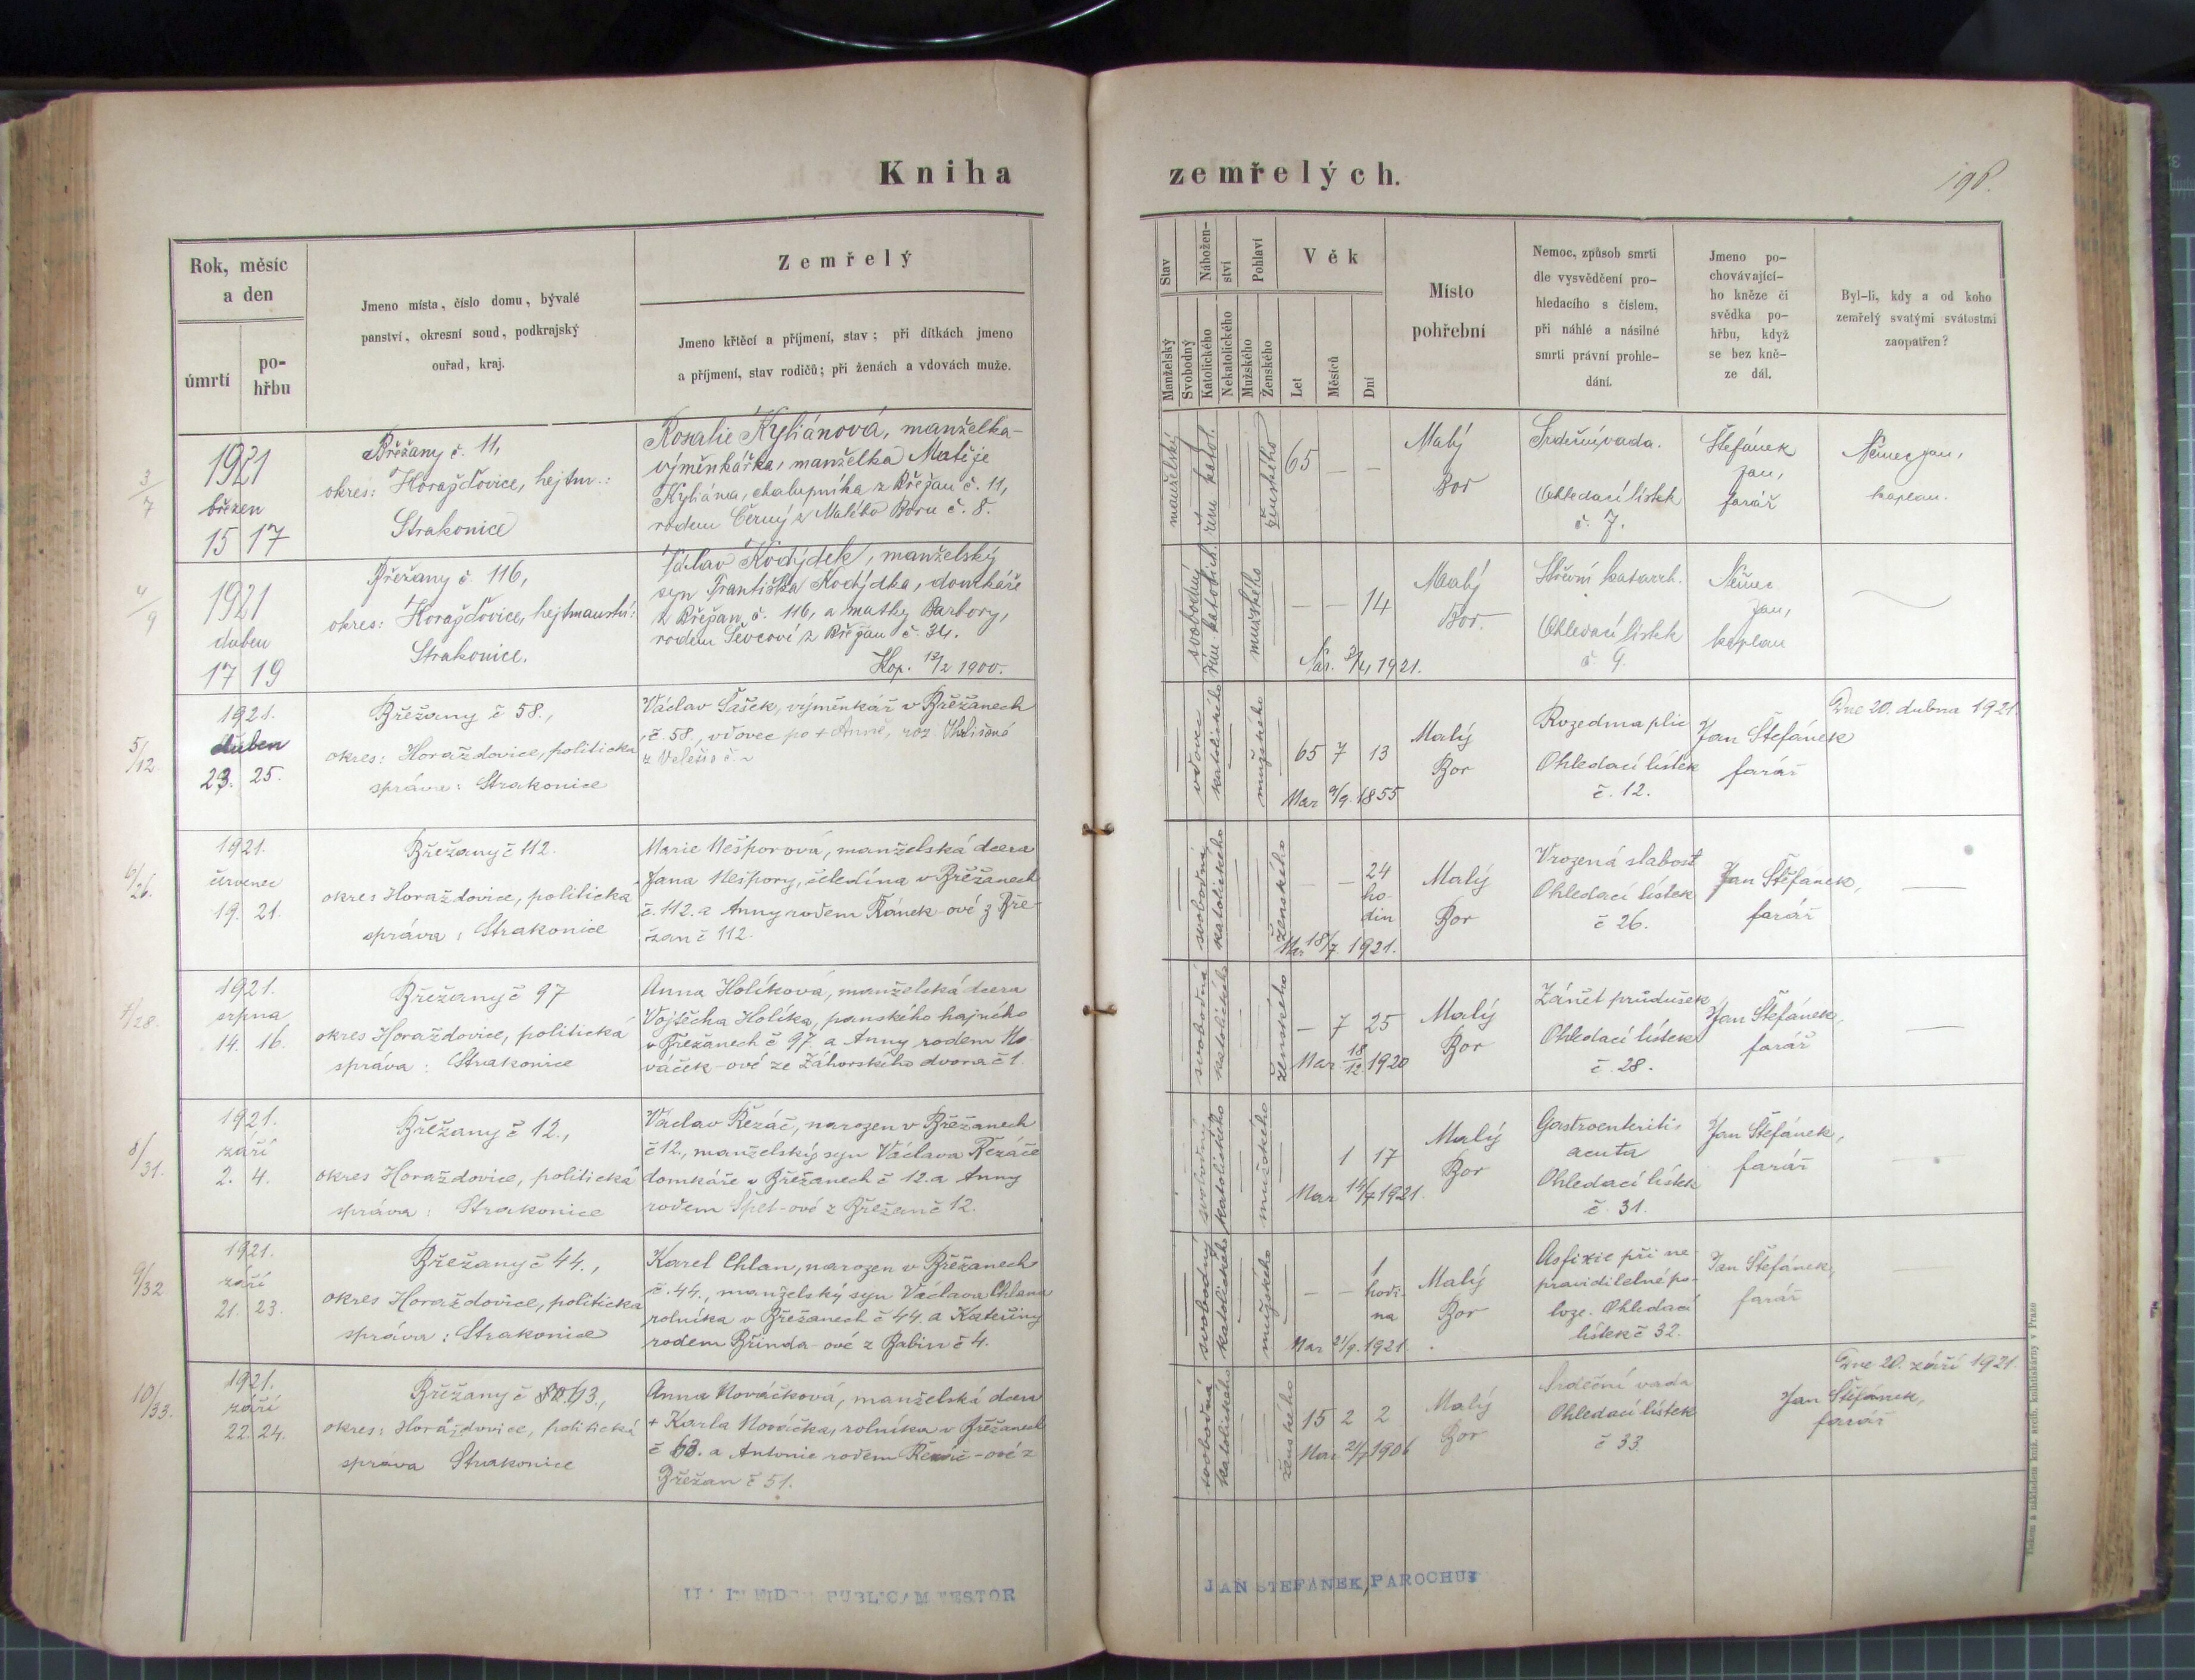 Kniha
zemřelých.
198.
Rok, měsíc
a den
úmrtí
po-
hřbu
Jmeno místa, číslo domu, bývalé
panství, okresní soud, podkrajský
ouřad, kraj.
Zemřelý
Jmeno křtěcí a příjmení, stav; při dítkách jmeno
a příjmení, stav rodičů; při ženách a vdovách muže.
Stav
Manželský
Svobodný
Nábožen-
ství
Katolického
Nekatolického
Pohlaví
Mužského
Ženského
Věk
Let
Měsíců
Dní
Místo
pohřební
Nemoc, způsob smrti
dle vysvědčení pro-
hledacího s číslem,
při náhlé a násilné
smrti právní prohle-
dání.
Jmeno po-
chovávající-
ho kněze či
svědka po-
hřbu, když
se bez kně-
ze dál.
Byl-li, kdy a od koho
zemřelý svatými svátostmi
zaopatřen?
3/7
1921
březen
15 17
Břežany č. 11,
okres: Horažďovice, hejtm.:
Strakonice
Rosalie Kyliánová, manželka-
výměnkářka, manželka Matěje
Kyliána, chalupníka z Břežan č. 11,
rodem Černý z Malého Boru č. 8.
manželský
řím. katol.
ženského
65 — —
Malý
Bor
Srdeční vada.
Ohledací lístek
č. 7.
Štefánek
Jan,
farář
Němec Jan,
kaplan.
4/9
1921
duben
17 19
Břežany č. 116,
okres: Horažďovice, hejtmanství:
Strakonice.
Václav Kochýdek, manželský
syn Františka Kochýdka, domkáře
z Břežan č. 116, a matky Barbory,
rodem Ševcové z Břežan č. 34.
Kop. 12/2 1900.
svobodný
řím. katolick.
mužského
— — 14
Nar. 3/4 1921.
Malý
Bor.
Střevní katarrh.
Ohledací lístek
č 9.
Němec
Jan,
kaplan
5/12
1921.
duben
23. 25.
Břežany č 58.,
okres: Horaždovice, politická
správa: Strakonice
Václav Šašek, výměnkář v Břežanech
č. 58., vdovec po + Anně, roz.
z
vdovec
katolického
mužského
65 7 13
Nar 9/9. 1855
Malý
Bor
Rozedma plic
Ohledací lístek
č. 12.
Jan Štefánek
farář
Dne 20. dubna 1921.
6/26.
1921.
červenec
19. 21.
Břežany č 112.
okres Horaždovice, politická
správa: Strakonice
Marie Nešporová, manželská dcera
Jana Nešpory, čeledína v Břežanech
č. 112. a Anny rodem Ránek-ové z Bře-
žan č 112.
svobodná
katolického
ženského
— — 24
ho-
din
Nar 18/7. 1921.
Malý
Bor
Vrozená slabost
Ohledací lístek
č 26.
Jan Štefánek,
farář
7/28.
1921.
srpna
14. 16.
Břežany č 97
okres Horaždovice, politická
správa: Strakonice
Anna Holíková, manželská dcera
Vojtěcha Holíka, panského hajného
v Břežanech č 97. a Anny rodem No-
váček-ové ze Záhorského dvora č 1.
svobodná
katolického
ženského
— 7 25
Nar 18/12 1920
Malý
Bor
Zánět průdušek
Ohledací lístek
č. 28.
Jan Štefánek,
farář
8/31.
1921.
září
2. 4.
Břežany č 12.,
okres Horaždovice, politická
správa: Strakonice
Václav Řezáč, narozen v Břežanech
č 12., manželský syn Václava Řezáče
domkáře v Břežanech č 12. a Anny
rodem Špet-ové z Břežan č 12.
svobodný
katolického
mužského
1 17
Nar 14/7 1921.
Malý
Bor
Gastroenteritis
acuta
Ohledací lístek
č. 31.
Jan Štefánek,
farář
9/32
1921.
září
21. 23.
Břežany č 44.,
okres Horaždovice, politická
správa: Strakonice
Karel Chlan, narozen v Břežanech
č. 44., manželský syn Václava Chlana
rolníka v Břežanech č 44. a Kateřiny
rodem Brinda-ové z Babin č 4.
svobodný
katolického
mužského
— — 1
hodi-
na
Nar 21/9. 1921.
Malý
Bor
Asfixie při ne-
pravidilelné po-
loze. Ohledací
lístek č 32.
Jan Štefánek,
farář
10/33.
1921.
září
22. 24.
Břežany č 63.,
okres: Horaždovice, politická
správa Strakonice
Anna Nováčková, manželská dcera
+ Karla Nováčka, rolníka v Břežanech
č 63. a Antonie rodem Řezáč-ové z
Břežan č 51.
svobodná
katolického
ženského
15 2 2
Nar 21/7 1906
Malý
Bor
Srdeční vada
Ohledací lístek
č 33
Jan Štefánek,
farář
Dne 20. září 1921.
PUBLICAM TESTOR
JAN STEFANEK, PAROCHUS
Tiskem a nákladem kníž. arcib. knihtiskárny v Praze